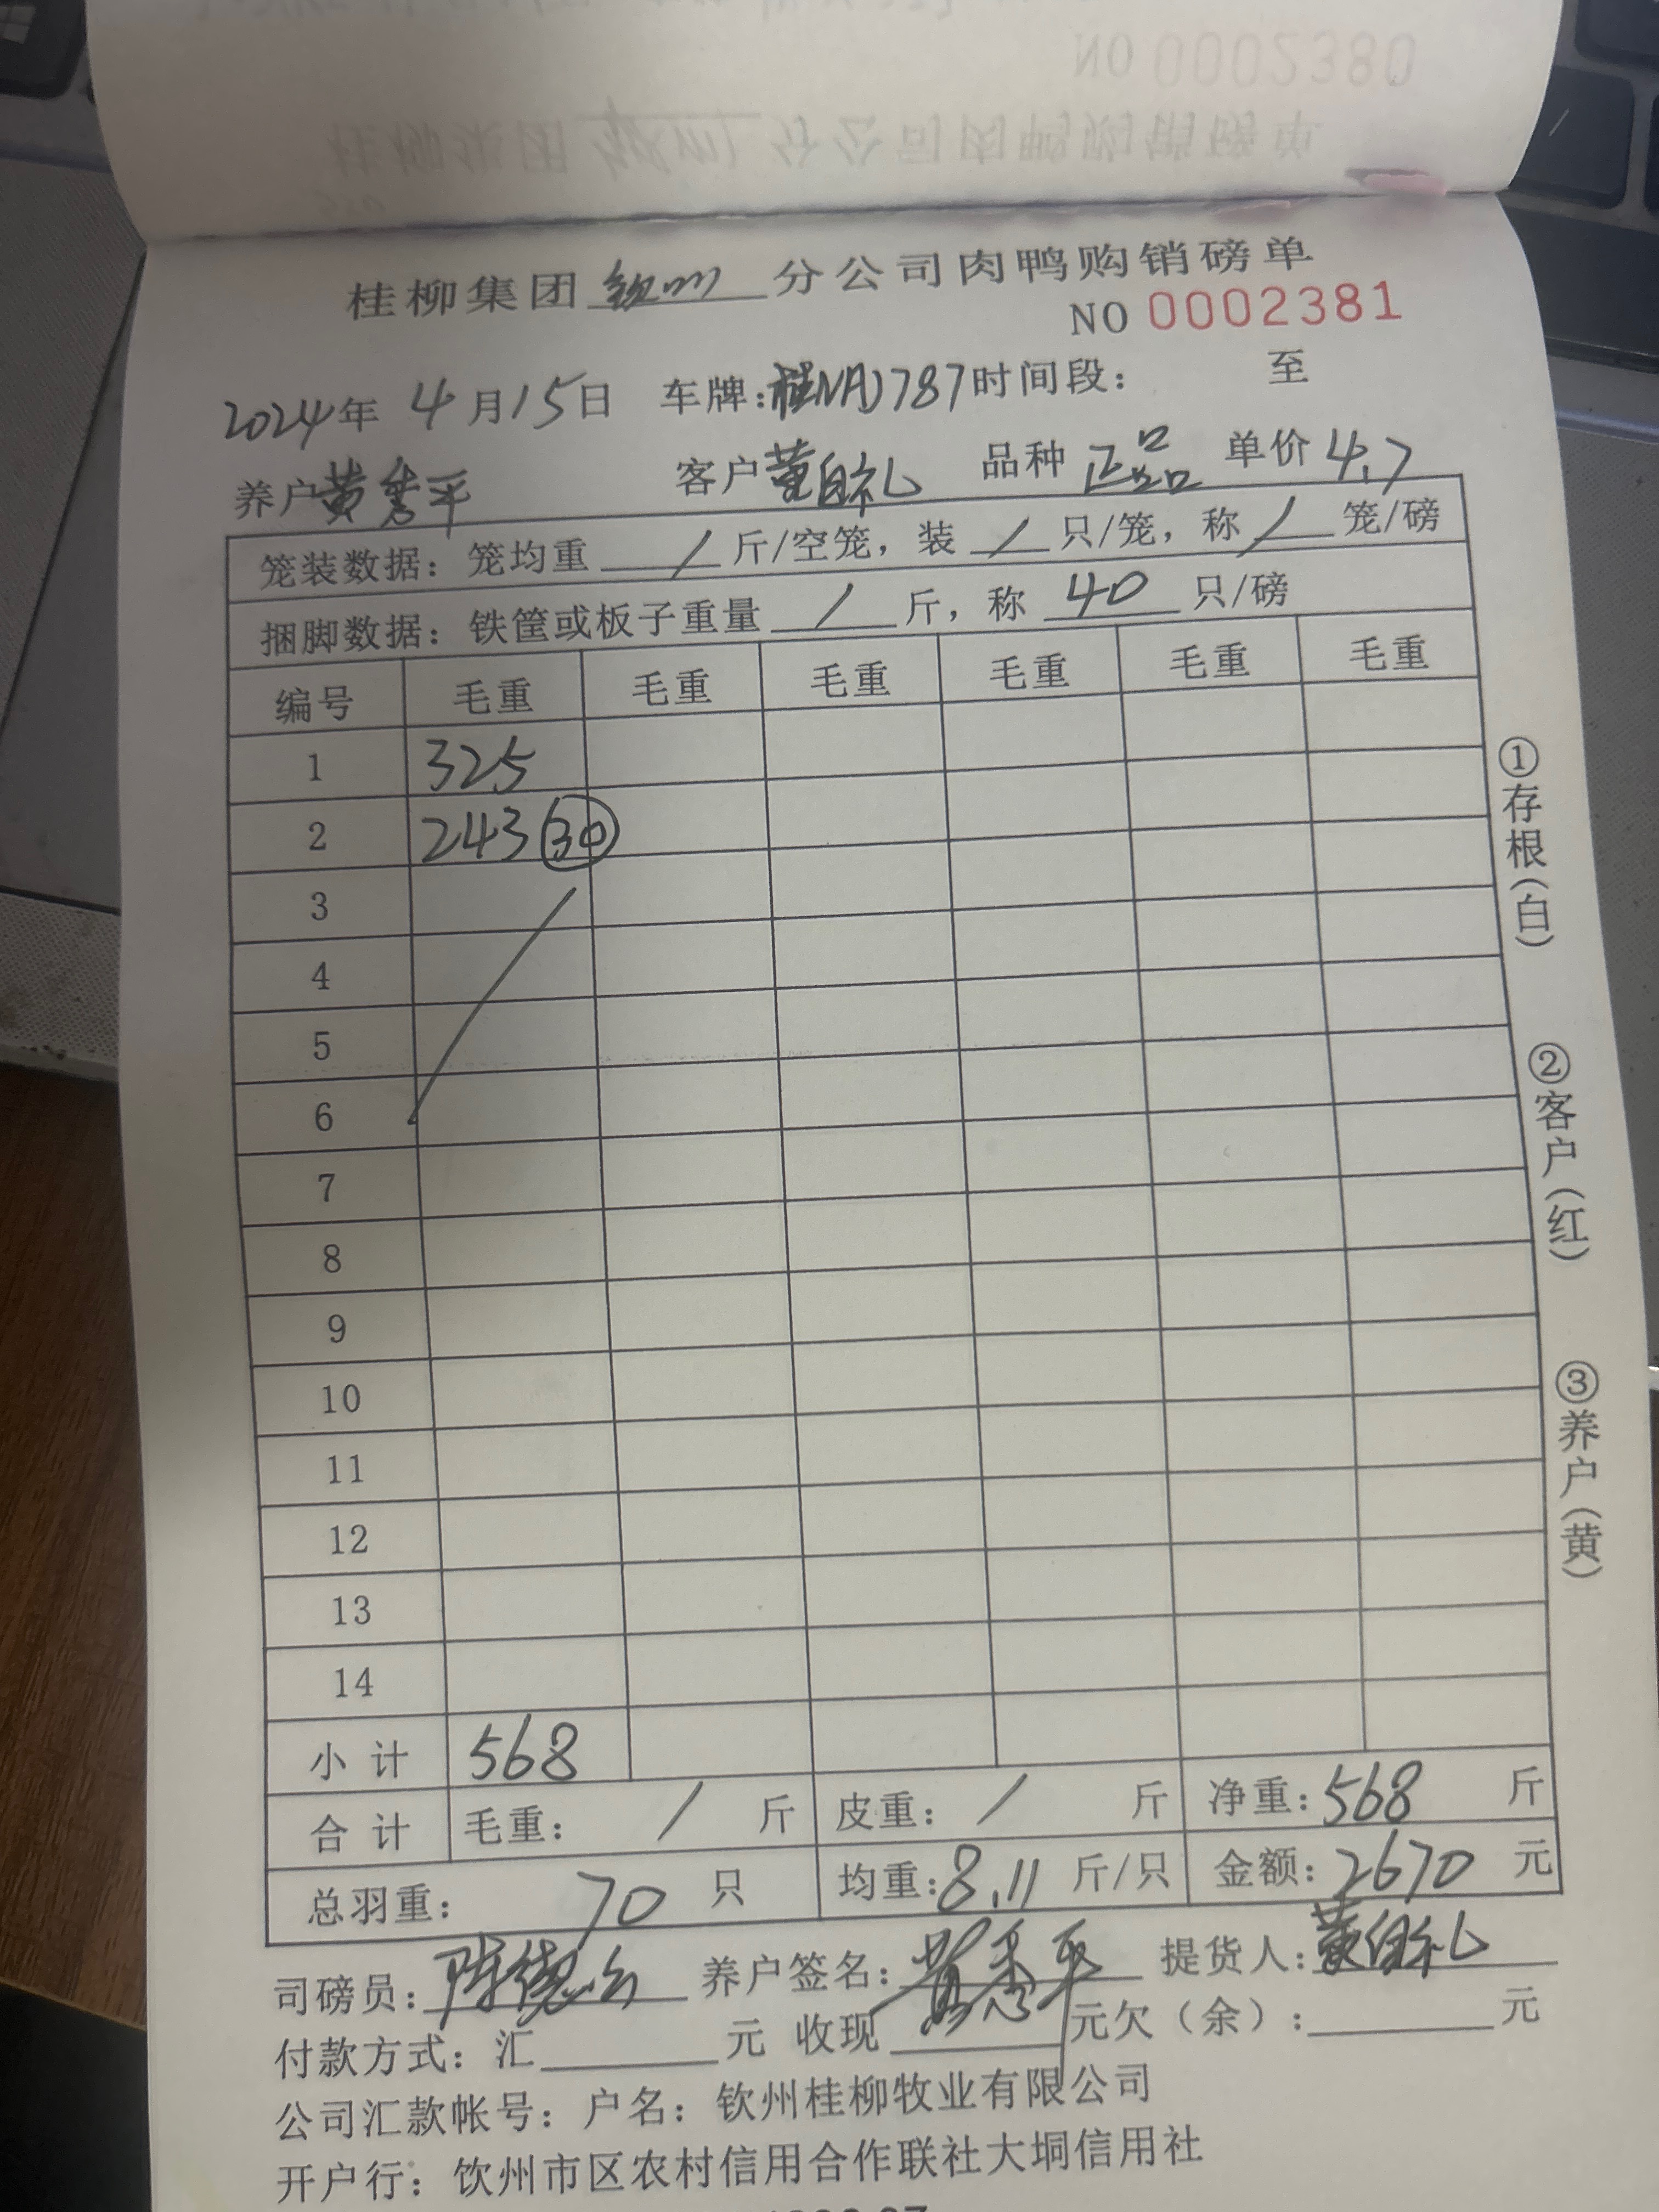 NO 0002380
桂柳集团钦州分公司肉鸭购销磅单
桂柳集团 钦州 分公司肉鸭购销磅单
NO 0002381
2024年 4月15日 车牌:桂NAJ787 时间段: 至
养户 黄秀平 客户 董自礼 品种 正品 单价 4.7
笼装数据:笼均重 / 斤/空笼,装 / 只/笼,称 / 笼/磅
捆脚数据:铁筐或板子重量 / 斤,称 40 只/磅
编号 毛重 毛重 毛重 毛重 毛重 毛重
1 325
2 243 30
3
4
5
6
7
8
9
10
11
12
13
14
小计 568
合计 毛重: / 斤 皮重: / 斤 净重:568 斤
总羽重: 70 只 均重:8.11 斤/只 金额:2670 元
司磅员: 养户签名:黄秀平 提货人:董自礼
付款方式:汇 元 收现 元欠(余): 元
公司汇款帐号:户名:钦州桂柳牧业有限公司
开户行:钦州市区农村信用合作联社大垌信用社
①存根(白)
②客户(红)
③养户(黄)